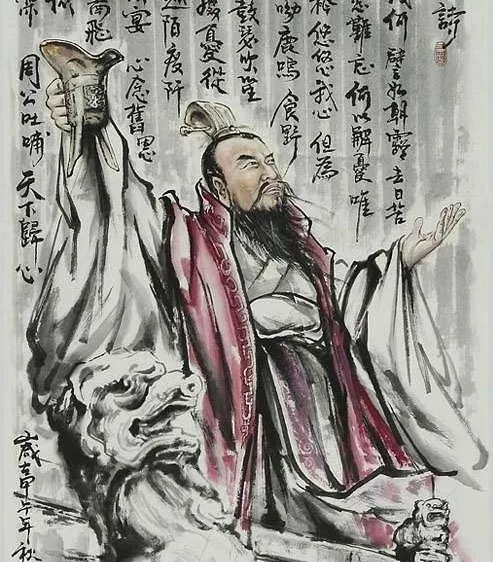 詩
幾何 譬如朝露 去日苦
思難忘 何以解憂 唯
衿 悠悠我心 但為
呦鹿鳴 食野
鼓瑟吹笙
掇 憂從
越陌度阡
宴 心念舊恩
南飛
周公吐哺 天下歸心
午年秋